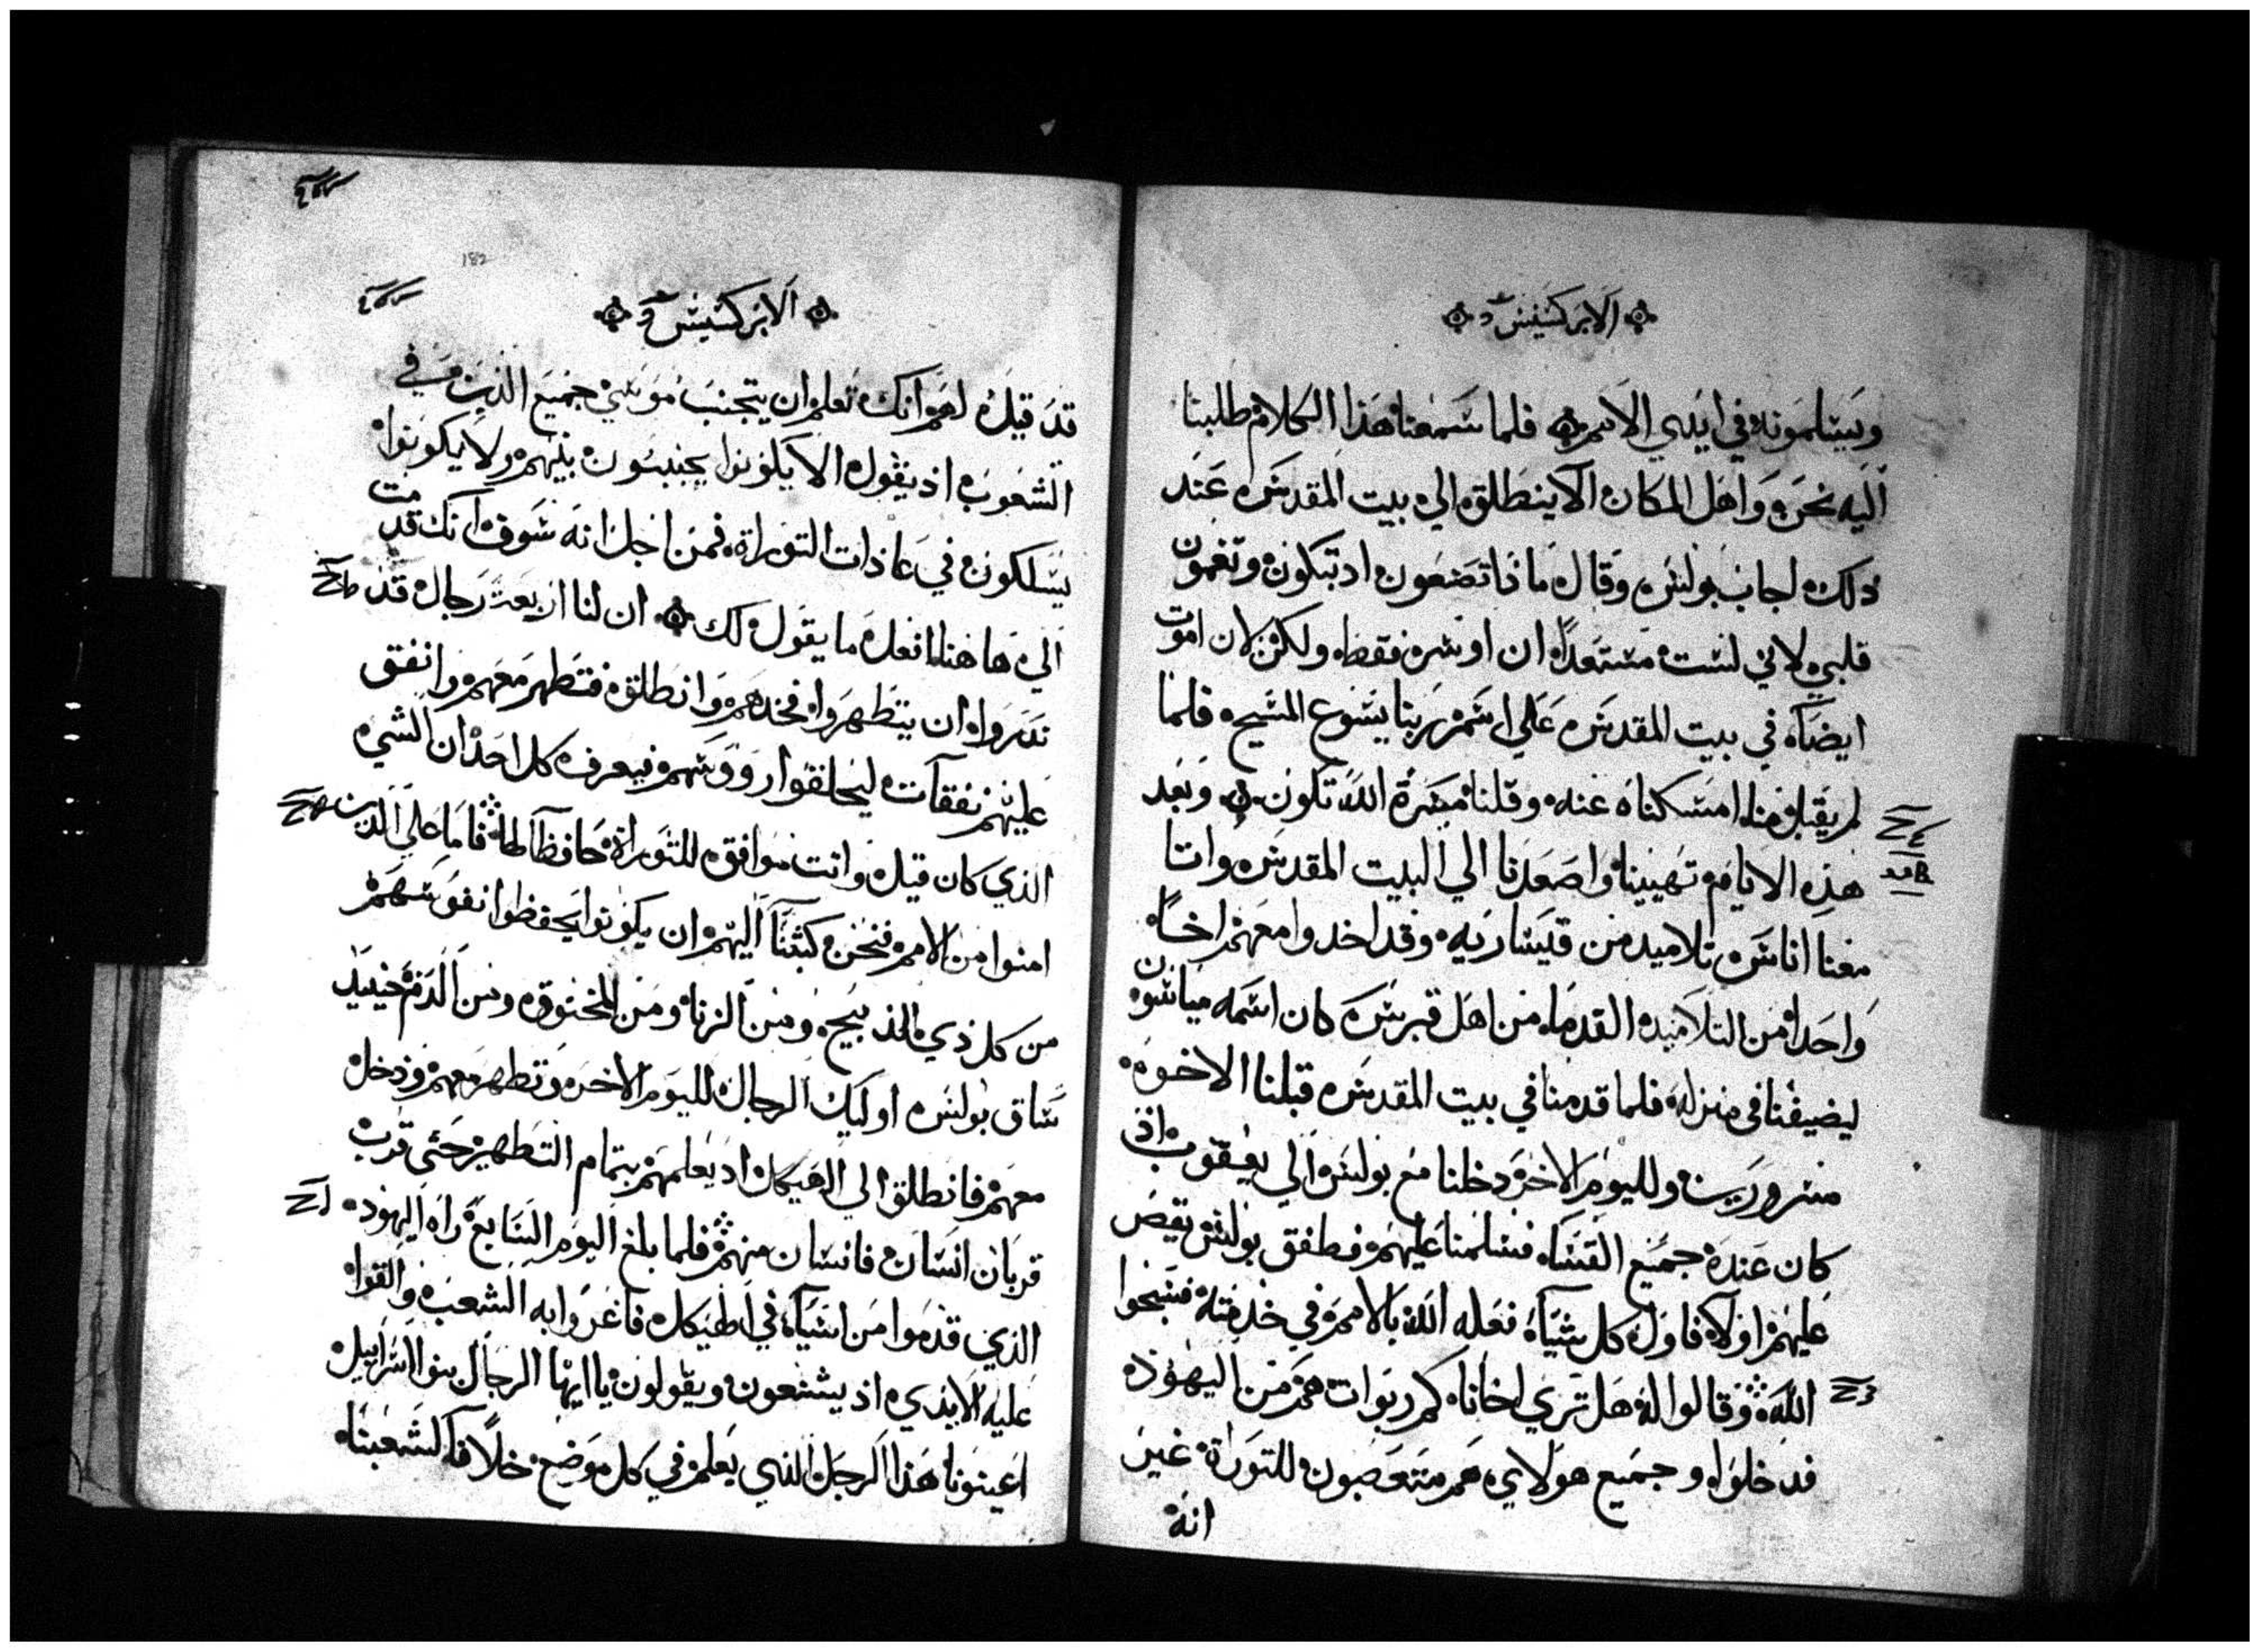 الابركسيس
ويسلمونه في ايدي الامم فلما سمعنا هذا الكلام طلبنا
اليه نحن واهل المكان الا ينطلق الي بيت المقدس عند
دلك اجاب بولس وقال ما ذا تصنعون اد تبكون وتغمون
قلبي لاني لست مستعداً ان اوسر فقط ولكن لان اموت
ايضاً في بيت المقدس علي اسم ربنا يسوع المسيح فلما
لم يقبل منا امسكنا عنه وقلنا مسرة الله تكون وبعد
هذه الايام تهيينا واصعدنا الي البيت المقدس واتا
معنا اناس تلاميد من قيسارية وقد اخدوا معهم اخاً
واحدا من التلاميد القدما من اهل قبرس كان اسمه مياسون
ليضيفنا في منزله فلما قدمنا في بيت المقدس قبلنا الاخوه
مسرورين ولليوم الاخر دخلنا مع بولس الي يعقوب اذ
كان عنده جميع القسا فسلمنا عليهم فطفق بولس يقص
عليهم اولا فاول كل شيا فعله الله بالامم في خدمته فسبحوا
الله وقالوا له هل تري اخانا كم ربوات هم من اليهوذ
قد خلوا وجميع هولاي هم متعصبون للتوراة غير
انه
182
الابركسيس
قد قيل لهم انك تعلم ان يتجنب موسي جميع الذين في
الشعوب اذ يقول الا يكونوا يختنون بنيهم ولا يكونوا
يسلكون في عاذات التوراة فمن اجل انه سوف انك قدمت
الي ها هنا افعل ما يقول لك ان لنا اربعة رجال قد
ندروا ان يتطهروا فخدهم وانطلق فتطهر معهم وانفق
عليهم نفقات ليحلقوا رووسهم فيعرف كل احد ان الشي
الذي كان قيل وانت موافق للتوراة حافظاً لها فاما علي الذين
امنوا من الامم فنحن كتبنا اليهم ان يكونوا يحفظوا انفوسهم
من كل ذي الذبيح ومن الزنا ومن المخنوق ومن الدم حينيد
ساق بولس اوليك الرجال لليوم الاخر وتطهر معهم ودخل
معهم فانطلق الي الهيكل اد يعلمهم بتمام التطهير حتي قرب
قربان انسان فانسان منهم فلما بلغ اليوم السابع راه اليهود
الذي قدموا من اسيا في الهيكل فاغروا به الشعب والقوا
عليه الايدي اذ يشنعون ويقولون يا ايها الرجال بنوا اسراييل
اعينونا هذا الرجل الذي يعلم في كل موضع خلافاً لشعبنا